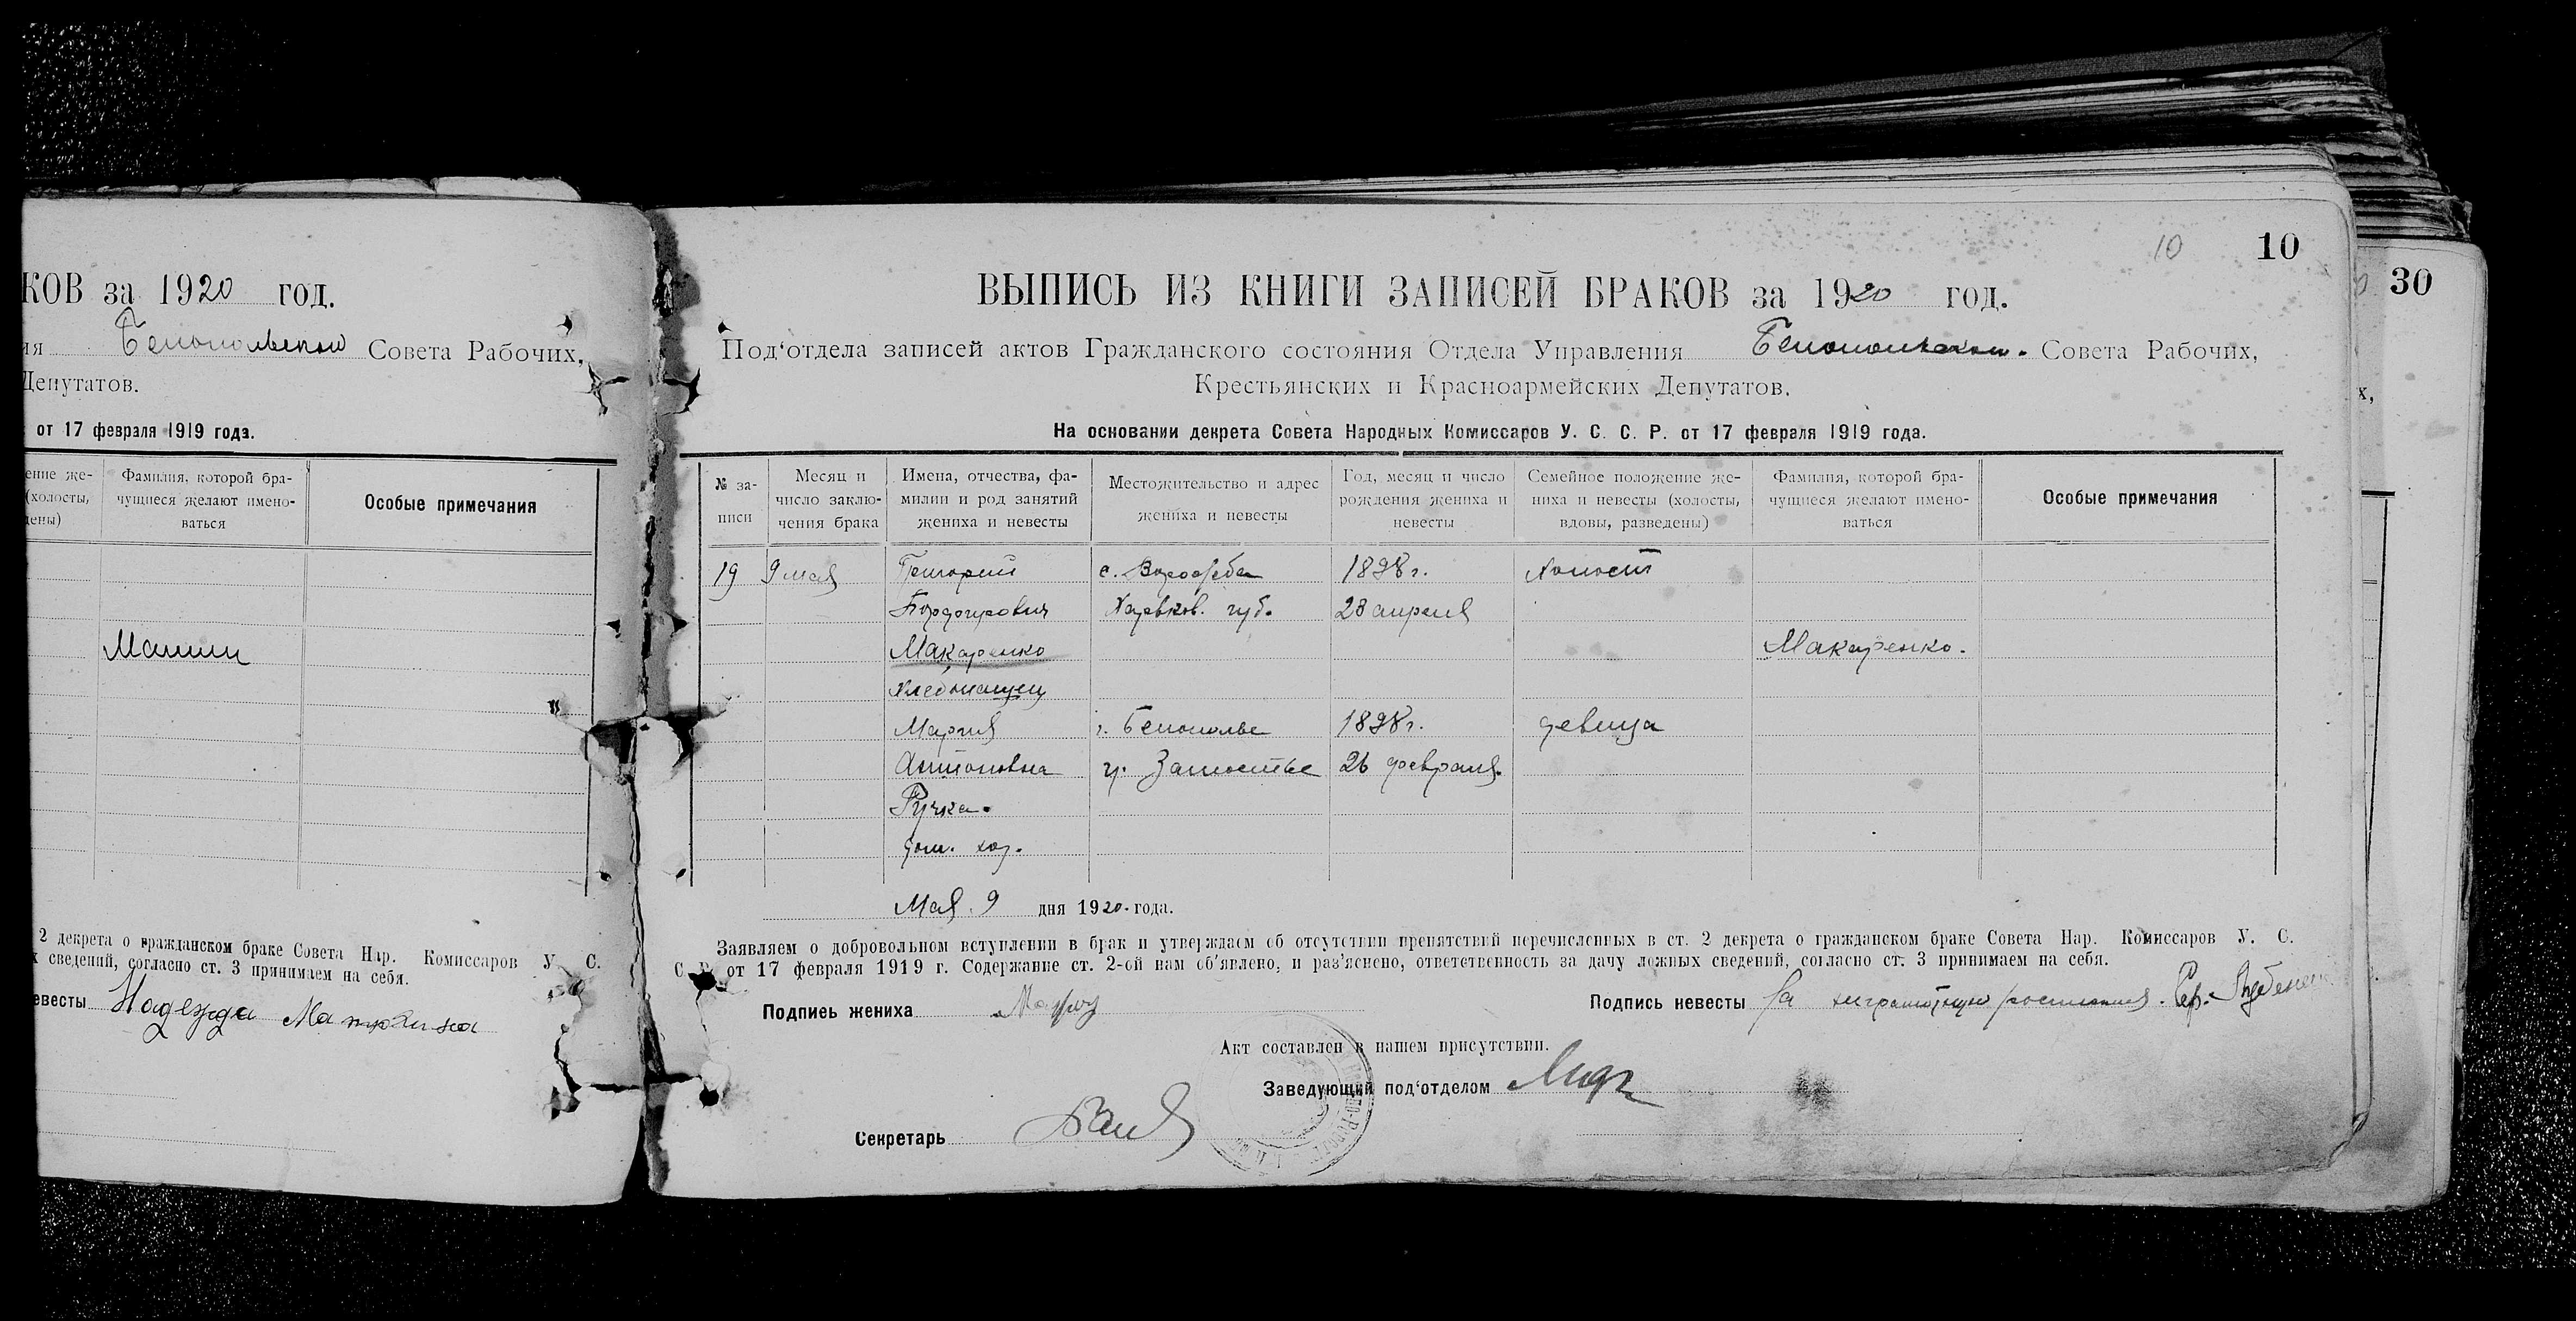 КОВ за 1920 год.
Белопольского Совета Рабочих,
Депутатов.
от 17 февраля 1919 года.
ение же-
(холосты,
дены)
Фамилия, которой бра-
чущиеся желают имено-
ваться
Особые примечания
2 декрета о гражданском браке Совета Нар. Комиссаров У. С.
сведений, согласно ст. 3 принимаем на себя.
евесты Надежда
10 10
30
ВЫПИСЬ ИЗ КНИГИ ЗАПИСЕЙ БРАКОВ за 1920 год.
Под‘отдела записей актов Гражданского состояния Отдела Управления Белопольском. Совета Рабочих,
Крестьянских и Красноармейских Депутатов.
На основании декрета Совета Народных Комиссаров У. С. С. Р. от 17 февраля 1919 года.
№ за-
писи
Месяц и
число заклю-
чения брака
Имена, отчества, фа-
милии и род занятий
жениха и невесты
Местожительство и адрес
жениха и невесты
Год, месяц и число
рождения жениха и
невесты
Семейное положение же-
ниха и невесты (холосты,
вдовы, разведены)
Фамилия, которой бра-
чущиеся желают имено-
ваться
Особые примечания
19 9 мая Григорий с. 1898 г. холост
Харьков. губ. 28 апреля
Макаренко Макаренко.
хлебопашец
Мария г. Белополье 1898 г. девица
Антоновна у. Замостье 26 февраля.
Ручка.
дом. хоз.
Мая 9 дня 1920 года.
Заявляем о добровольном вступлении в брак и утверждаем об отсутствии препятствий перечисленных в ст. 2 декрета о гражданском браке Совета Нар. Комиссаров У. С.
С. Р. от 17 февраля 1919 г. Содержание ст. 2-ой нам об‘явлено, и раз‘яснено, ответственность за дачу ложных сведений, согласно ст. 3 принимаем на себя.
Подпись жениха
Подпись невесты За неграмотную
Акт составлен в нашем присутствии.
Заведующий под‘отделом
Секретарь